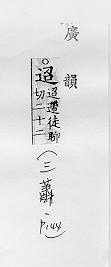 廣韻
○迢
迢遰徒聊
切二十二
(三蕭·
P.144)